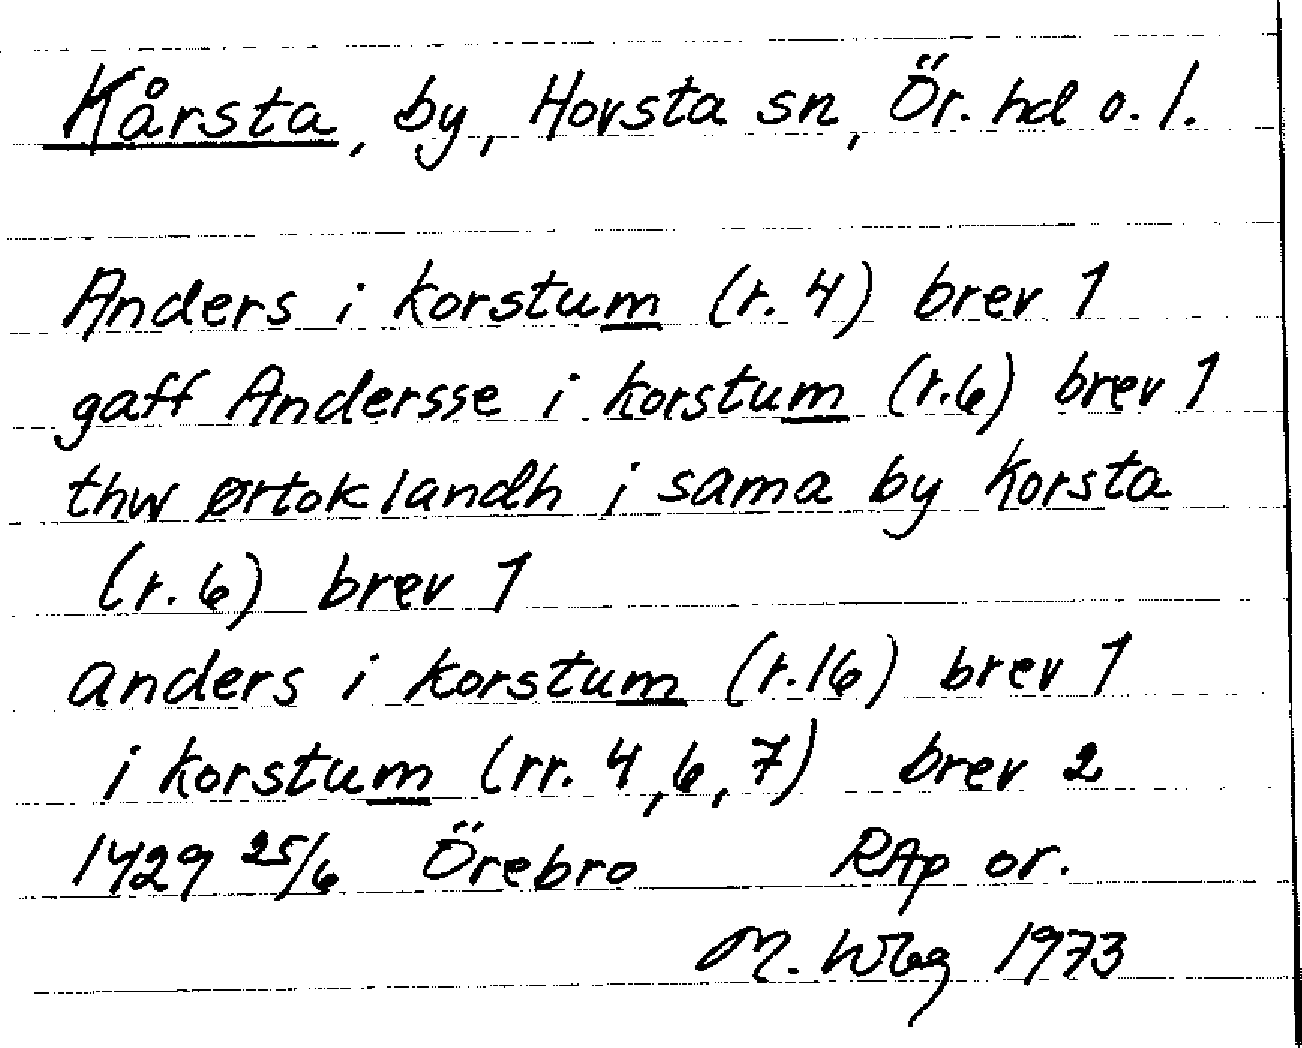 Kårsta, by, Hovsta sn, Ör. hd o. l.
Anders i korstum (r. 4) brev 1
gaff Andersse i korstum (r.6) brev 1
thw ørtoklandh i sama by korsta
(r. 6) brev 1
anders i korstum (r.16) brev 1
i korstum (rr. 4,6,7) brev 2
1429 25/6 Örebro RAp or.
M. Wbg 1973